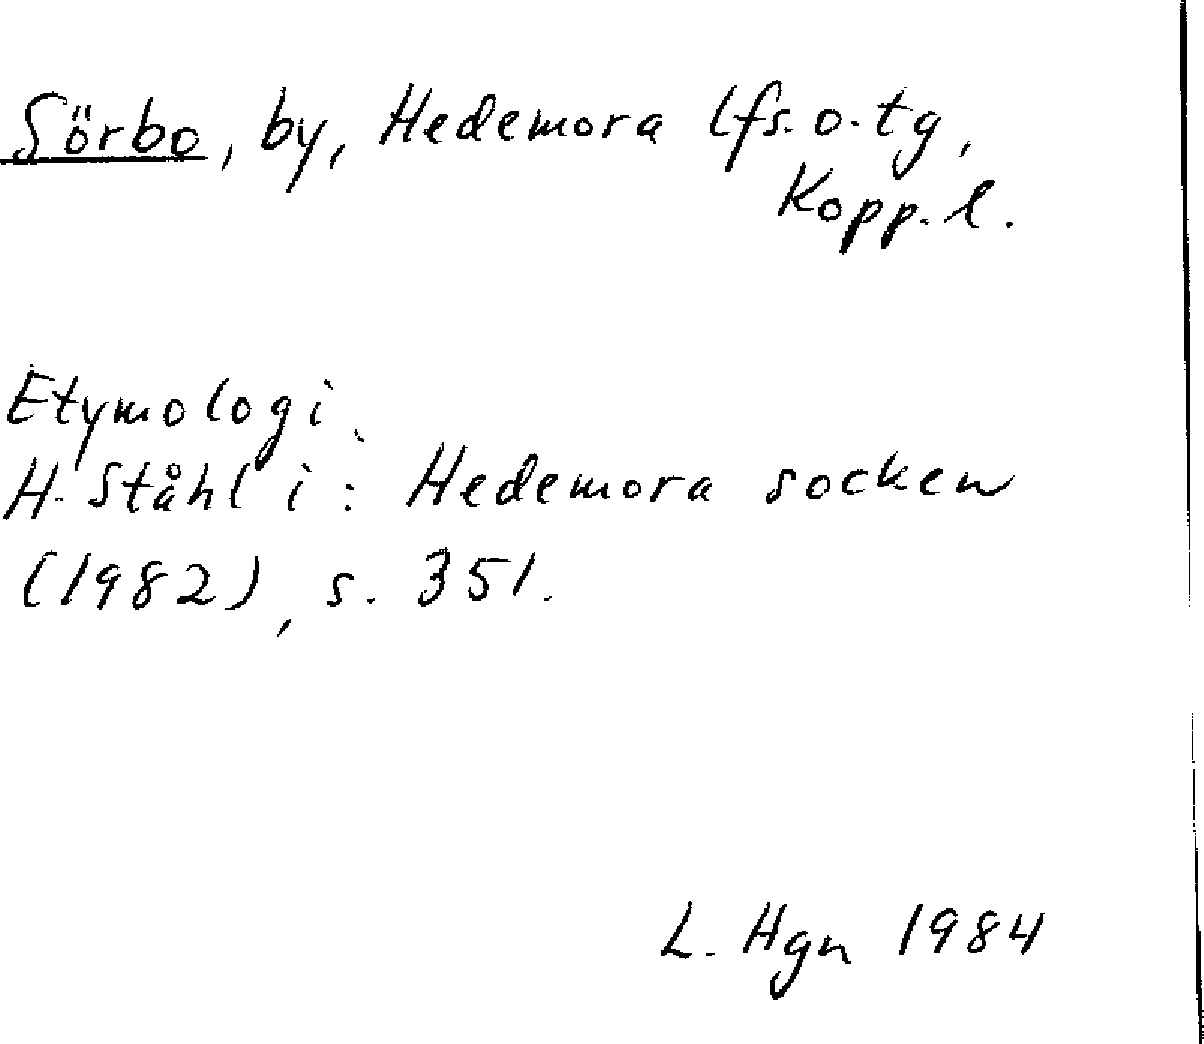 Sörbo, by, Hedemora lfs. o. tg,
Kopp. l.
Etymologi.
H. Ståhl i: Hedemora socken
(1982), s. 351.
L. Hgn 1984